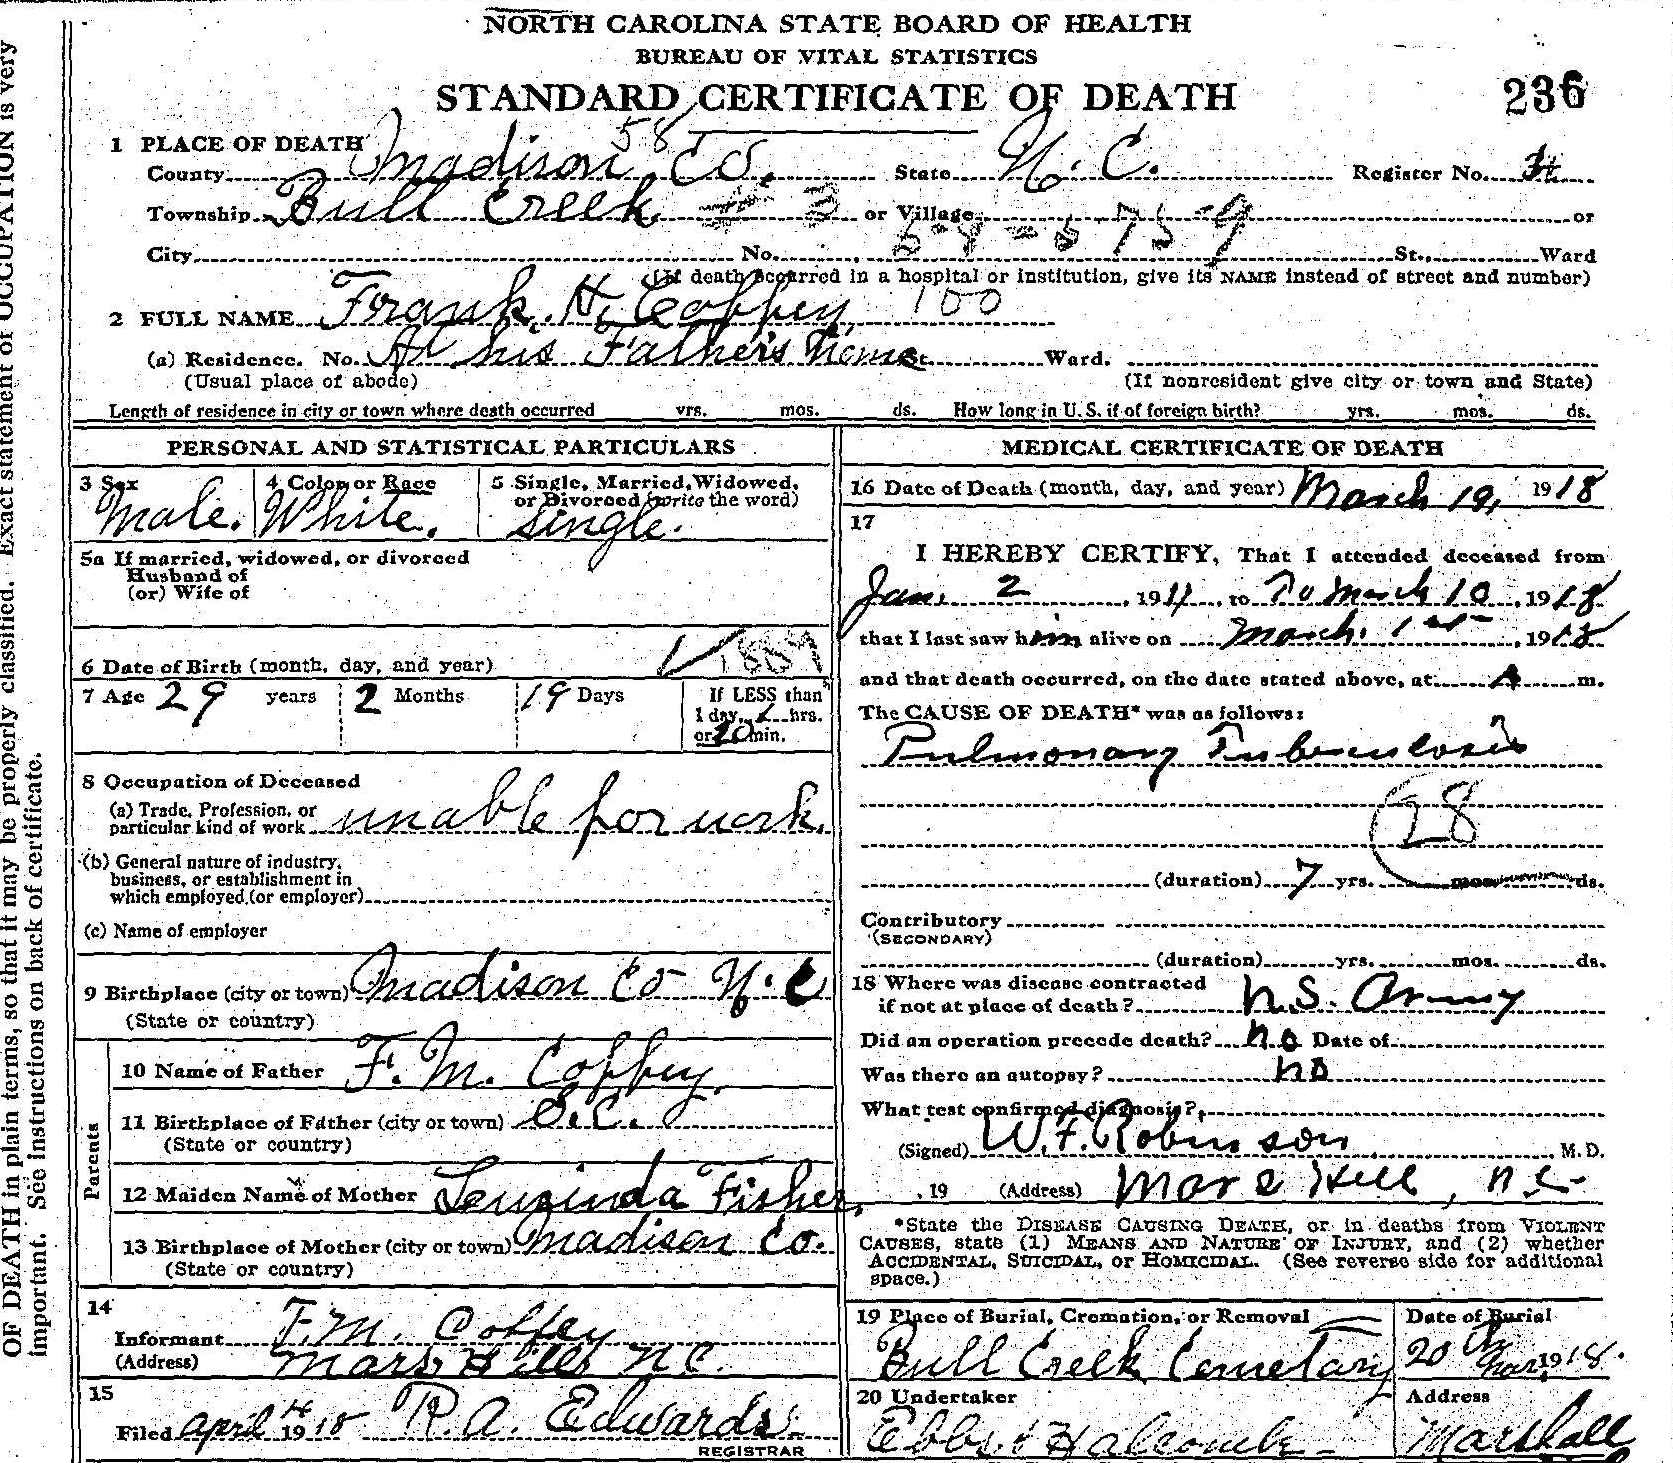 OF DEATH in plain terms, so that it may be properly classified. Exact statement of OCCUPATION is very
important. See instructions on back of certificate.
NORTH CAROLINA STATE BOARD OF HEALTH
BUREAU OF VITAL STATISTICS
STANDARD CERTIFICATE OF DEATH
236
58
1 PLACE OF DEATH
County Madison Co. State N. C. Register No.
Township Bull Creek # 3 or Village or
City No. St. Ward
(If death occurred in a hospital or institution, give its NAME instead of street and number)
2 FULL NAME Frank H. Coffey 100
(a) Residence. No. At his Father's home St. Ward.
(Usual place of abode) (If nonresident give city or town and State)
Length of residence in city or town where death occurred yrs. mos. ds. How long in U. S. if of foreign birth? yrs. mos. ds.
PERSONAL AND STATISTICAL PARTICULARS
3 Sex 4 Color or Race 5 Single, Married, Widowed, or Divorced (write the word)
Male. White. Single.
5a If married, widowed, or divorced
Husband of
(or) Wife of
6 Date of Birth (month, day, and year) 1889
7 Age 29 years 2 Months 19 Days If LESS than
1 day, hrs.
or 20 min.
8 Occupation of Deceased
(a) Trade, Profession, or
particular kind of work unable for work.
(b) General nature of industry,
business, or establishment in
which employed (or employer)
(c) Name of employer
9 Birthplace (city or town) Madison Co N. C
(State or country)
Parents
10 Name of Father F. M. Coffey.
11 Birthplace of Father (city or town) S. C.
(State or country)
12 Maiden Name of Mother Fisher.
13 Birthplace of Mother (city or town) Madison Co.
(State or country)
14
Informant F. M. Coffey
(Address) Mars Hill N C.
15
Filed April 4 1918 R. A. Edwards
REGISTRAR
MEDICAL CERTIFICATE OF DEATH
16 Date of Death (month, day, and year) March 19, 1918
17
I HEREBY CERTIFY, That I attended deceased from
Jan. 2 1911, to To March 10, 1918
that I last saw him alive on March 1st, 1918
and that death occurred, on the date stated above, at A m.
The CAUSE OF DEATH* was as follows:
Pulmonary Tuberculosis
28
(duration) 7 yrs. mos. ds.
Contributory
(SECONDARY)
(duration) yrs. mos. ds.
18 Where was disease contracted
if not at place of death? U.S. Army
Did an operation precede death? no Date of
Was there an autopsy? no
What test confirmed diagnosis?
(Signed) W. F. Robinson, M. D.
, 19 (Address) Mars Hill, N.C.
*State the DISEASE CAUSING DEATH, or in deaths from VIOLENT
CAUSES, state (1) MEANS AND NATURE OF INJURY, and (2) whether
ACCIDENTAL, SUICIDAL, or HOMICIDAL. (See reverse side for additional
space.)
19 Place of Burial, Cremation, or Removal Date of Burial
Bull Creek Cemetary 20th Mar. 1918.
20 Undertaker Address
Ebbs & Halcomb Marshall